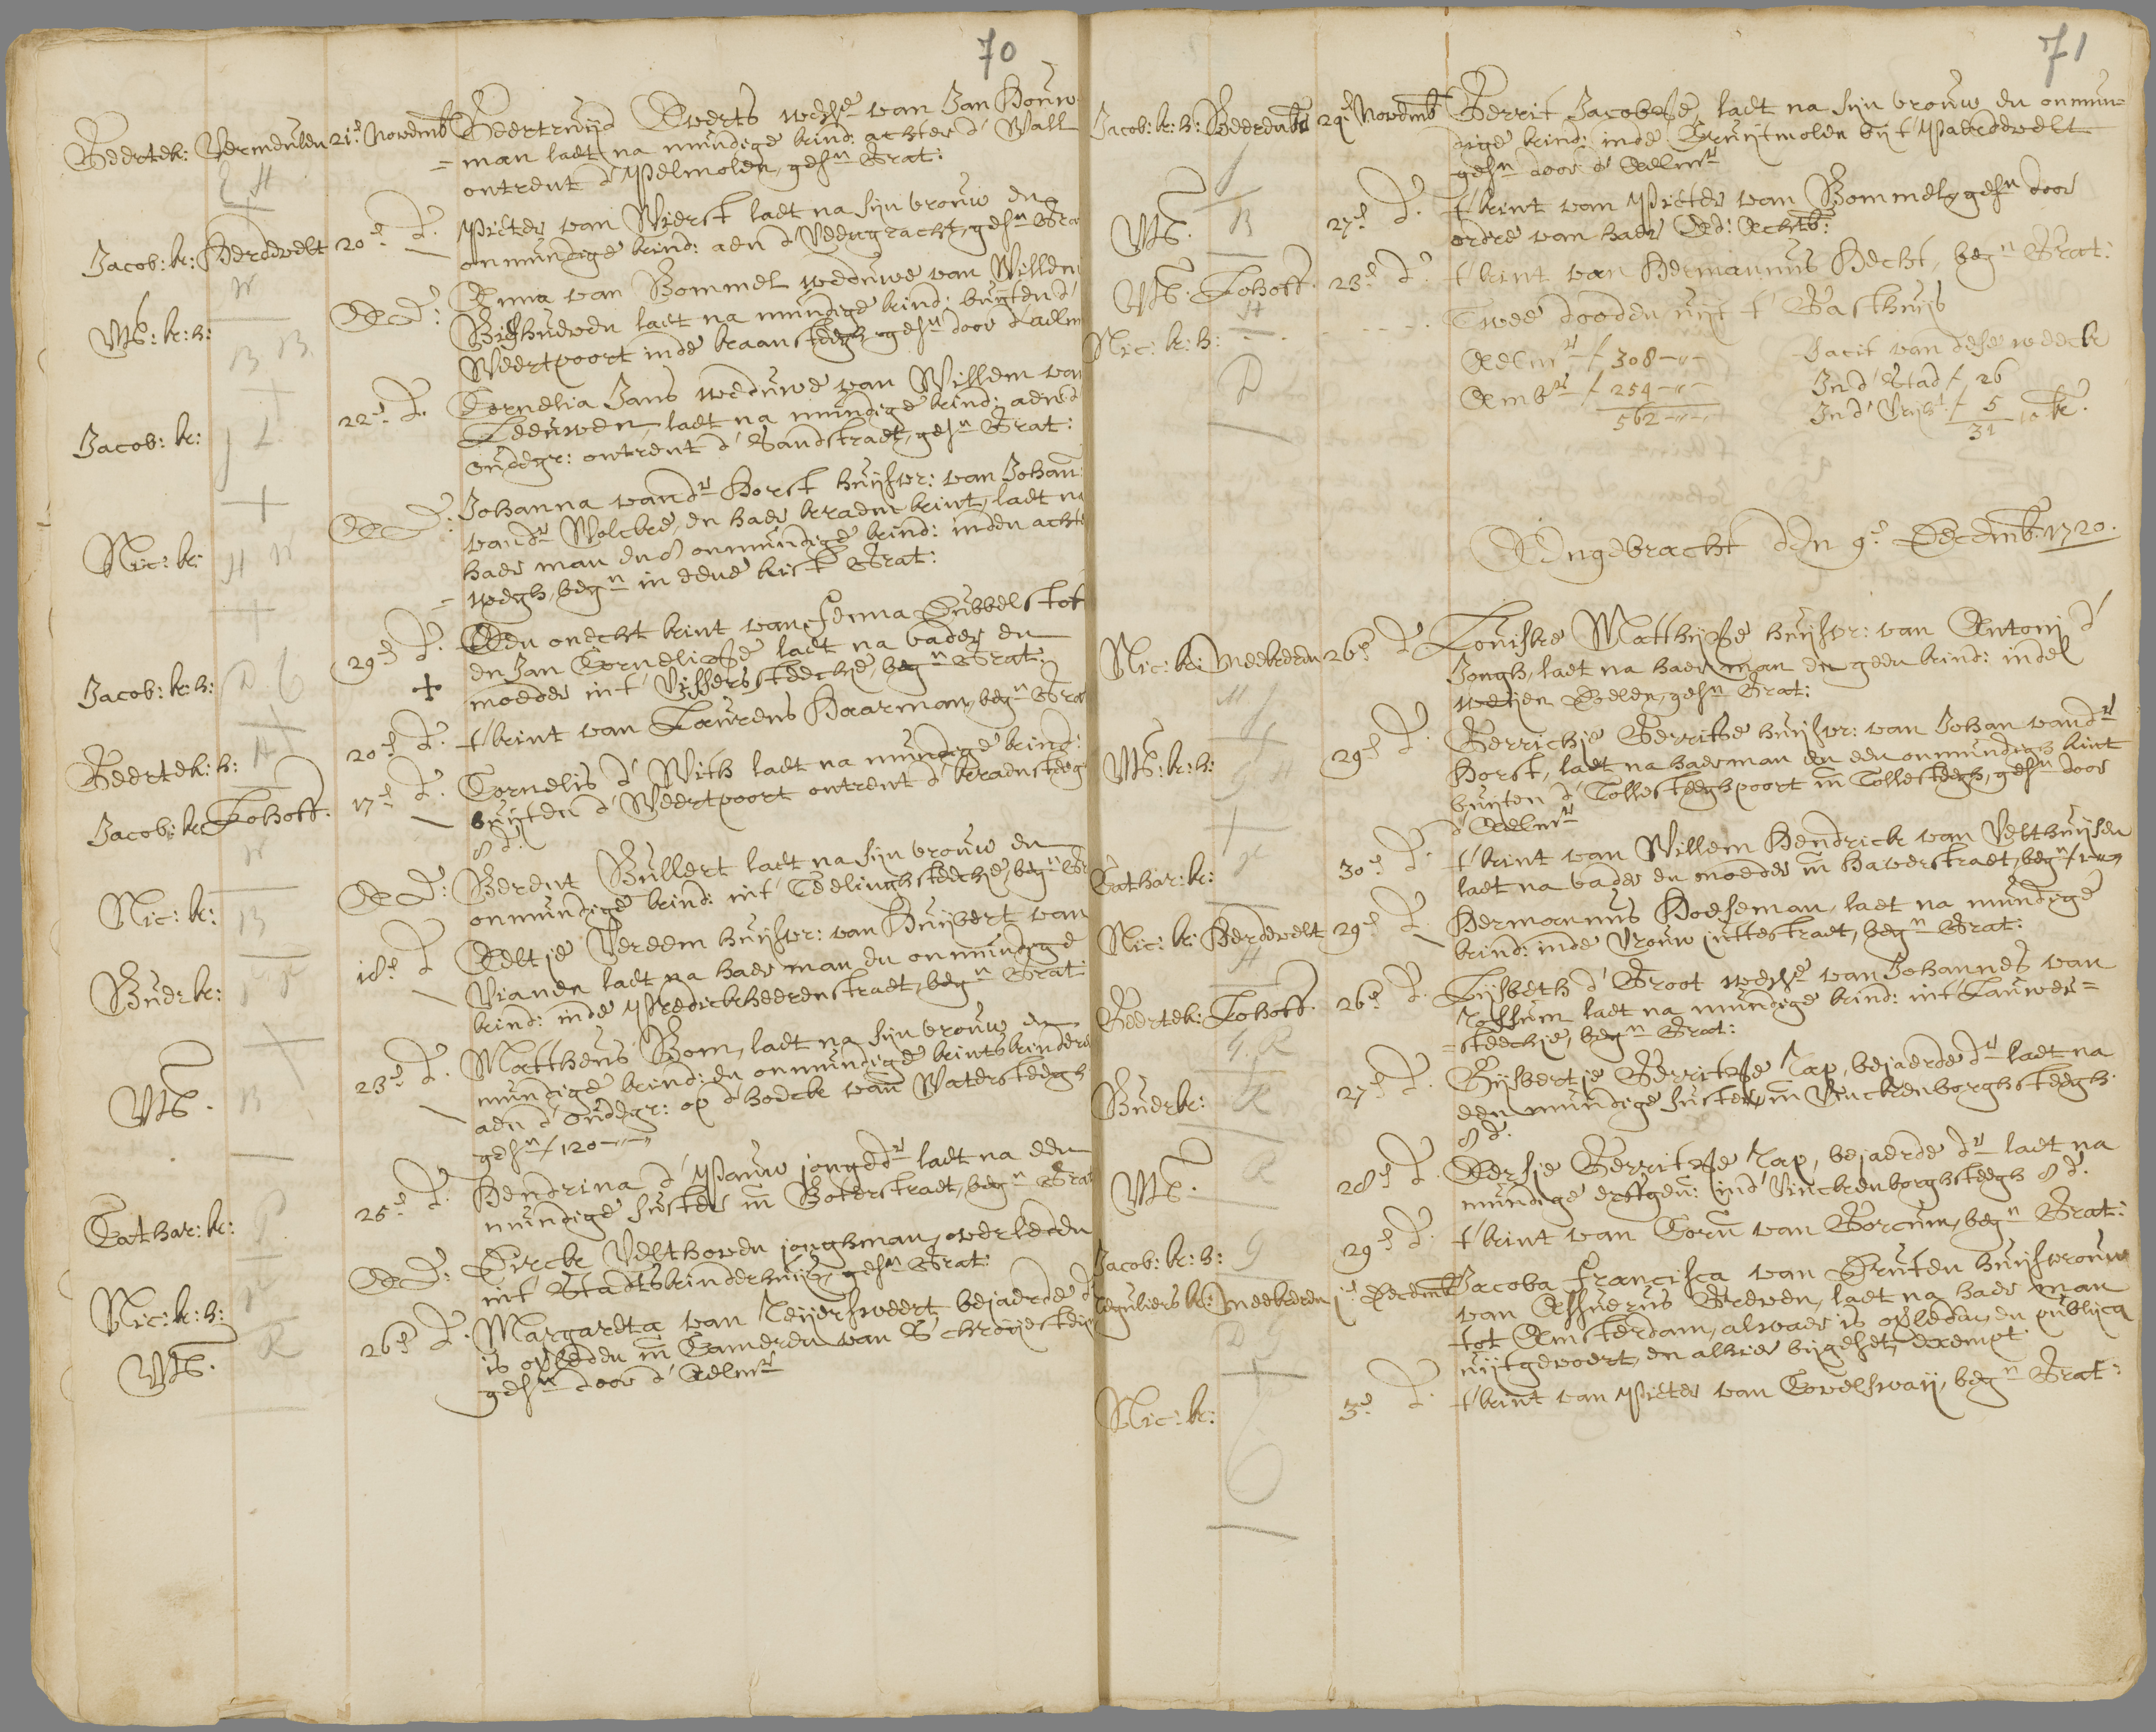 70
Geertek: Vermeulen 21e Novemb Geertruijd Everts wede van Jan Houw
= man laet na mundige kind: achter d' Wall
ontrent d' Pelmolen, gesn Grat:
Jacob: k: Herdevelt 20e d. Pieter van Wierst laet na sijn vrouw en
onmundige kind: aen d' Veerngracht, gesn Gra
Mb: k: h: De d: Anna van Bommel weduwe van Willem
laet na mundige kind: buijten d'
Weertpoort inde kraansteegh gesn door d'aelm
Jacob: k: 22e d. Cornelia Jans weduwe van Willem van
Leeuwen, laet na mundige kind: aen d'
oudegr: ontrent d' Sandstraet, gesn Grat:
Nic: k: De d: Johanna vandr Horst huijsvr: van Johan
vandr Wolcke, en haer kraemkint, laet na
haer man en 8 onmundige kind: inden acht
= wegh, begn in eene kist Grat:
Jacob: k: h: 29e d. Een onecht kint van Jenna Dubbelstof
en Jan Cornelisse laet na vader en
+ moeder int Vissersteechie, begn Grat:
Geertek: h: 20e d. t' kint van Laurens Haarman, begn Gra
Jacob: k: Lohoff. 17e d. Cornelis d' With laet na mundige kind:
buijten d' Weertpoort ontrent d' kraensteeg
8 d.
Nic: k: De d: Berent Bullert laet na sijn vrouw en
onmundige kind: int Teelinghsteechie, begn Gr
Buerk: 18e d Aeltje Vereem huijsvr: van Huijbert van
Vianen laet na haer man en onmundige
kind: inde Predickheerenstraet, begn Grat
Mb. 23e d. Mattheus Bom, laet na sijn vrouw en
mundige kind: en onmundige kintskinder
aen d' oudegr: op d' hoeck van Watersteegh
gesn f 120-"-"
Cathar: k: 25e d. Hendrina d' Pauw jongedr laet na een
mundige suster in Boterstraet, begn Grat
Nic: k: h: De d: Dirck Velthoven jonghman, overleeden
int Stadtskinderhuijs, gesn Grat:
Mb. 26e d. Margareta van Reijersweert bejaerde d
is overleeden in Cameren van
gesn door d' Aelmr
71
Jacob: k: h: 29e Novemb Gerrit Jacobse, laet na sijn vrouw en onmun-
dige kind: inde Gruijtmolen bij t' Paerdevelt
gesn door d' Aelmr
Mb. 27e d. t' kint van Pieter van Bommel, gesn door
ordre van haer Ed: Achtb:
Mb. Lohoff. 23e d. t' kint van Hermannus Hecht, begn Grat:
Nic: k: h: Twee dooden uijt t' Gasthuijs
Aelmr f 308-"- Facit van dese weeck
Ambr f 254-"- In d' Stad f 26
562-"- In d' Vrijh f 5
31 10 k.
Aengebracht den 9e Decemb: 1720.
Nic: k: Meekeren 26e d Louiske Matthijsse huijsvr: van Antonij d'
Jongh, laet na haer man en geen kind: indel
gesn Grat:
Mb: k: h: 29e d. Gerrichje Gerritse huijsvr: van Johan vandr
Horst, laet na haer man en een onmundigh kint
buijten d' Tollesteeghpoort in Tollesteegh, gesn door
d' Aelmr
Cathar: k: 30e d. t' kint van Willem Hendrick van Velthuijsen
laet na vader en moeder in Haverstraet, begn
Nic: k: Herdevelt 29e d Hermannus Hoeseman, laet na mundige
kind: inde Vrouwjuttestraet, begn Grat:
Geertek: Lohoff. 26e d. Lijsbeth d' Groot wede van Johannes van
Rossum laet na mundige kind: int Lauwer=
= steechje, begn Grat:
Buerk: 27e d. Gijsbertje Gerritse Rap, bejaerde dr laet na
een mundige suster, in Vinckenborghsteegh.
8 d.
Mb. 28e d. Aersje Gerritse Rap, bejaerde dr laet na
mundige erfgen: in d' Vinckenborghsteegh 8 d.
Jacob: k: h: 29e d. t' kint van Corn van Gorcum, begn Grat:
Reguliers k: Meekeren 1e Decemb Jacoba Francisca van Druten huijsvrouw
van Assuerus Greven, laet na haer man
tot Amsterdam, alwaer is overleden, en publijcq
uijtgevoert, en alhier bijgeset, exempt
Nic: k: 3e d. t' kint van Pieter van Covelswaij, begn Grat: